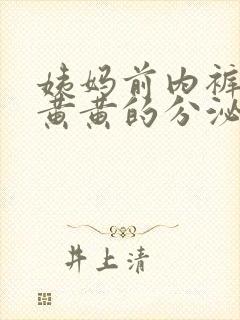 姨妈前内裤
黄黄的分泌
井上清